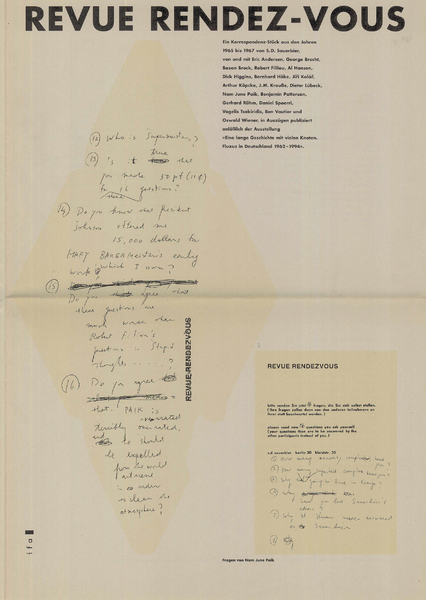 REVUE RENDEZ-VOUS
Ein Korrespondenz-Stück aus den Jahren
1965 bis 1967 von S.D. Sauerbier,
von und mit Eric Andersen, George Brecht,
Bazon Brock, Robert Filliou, Al Hansen,
Dick Higgins, Bernhard Höke, Jiří Kolář,
Arthur Köpcke, J.M. Krauße, Dieter Lübeck,
Nam June Paik, Benjamin Patterson,
Gerhard Rühm, Daniel Spoerri,
Vagelis Tsakiridis, Ben Vautier und
Oswald Wiener, in Auszügen publiziert
anläßlich der Ausstellung
»Eine lange Geschichte mit vielen Knoten.
Fluxus in Deutschland 1962–1994«.
(12) Who is Supermaster?
(13) 's it true that
you made 50 pf (11¢)
for 16 questions?
(14) Do you know that President
Johnson offered me
15,000 dollars for
MARY BAUERMEISTERs early
work which I own?
(15)
Do you agree that
these questions are
much worse than
Robert Filliou's
questions in Stupid
thoughts ......?
(16) Do you agree
that PAIK is
terribly overrated,
and he should
be expelled
from the world
in order
to clean the
atmosphere?
REVUE RENDEZVOUS
REVUE RENDEZVOUS
bitte senden Sie uns fragen, die Sie sich selbst stellen.
(Ihre fragen sollen dann von den anderen teilnehmern an
Ihrer statt beantwortet werden.)
please send me questions you ask yourself
(your questions then are to be answered by the
other participants instead of you.)
sd sauerbier berlin 30
(1) How many
(2) How many
(3) Why people live in
(4) Why
(5) Why
(6)
ifa
Fragen von Nam June Paik